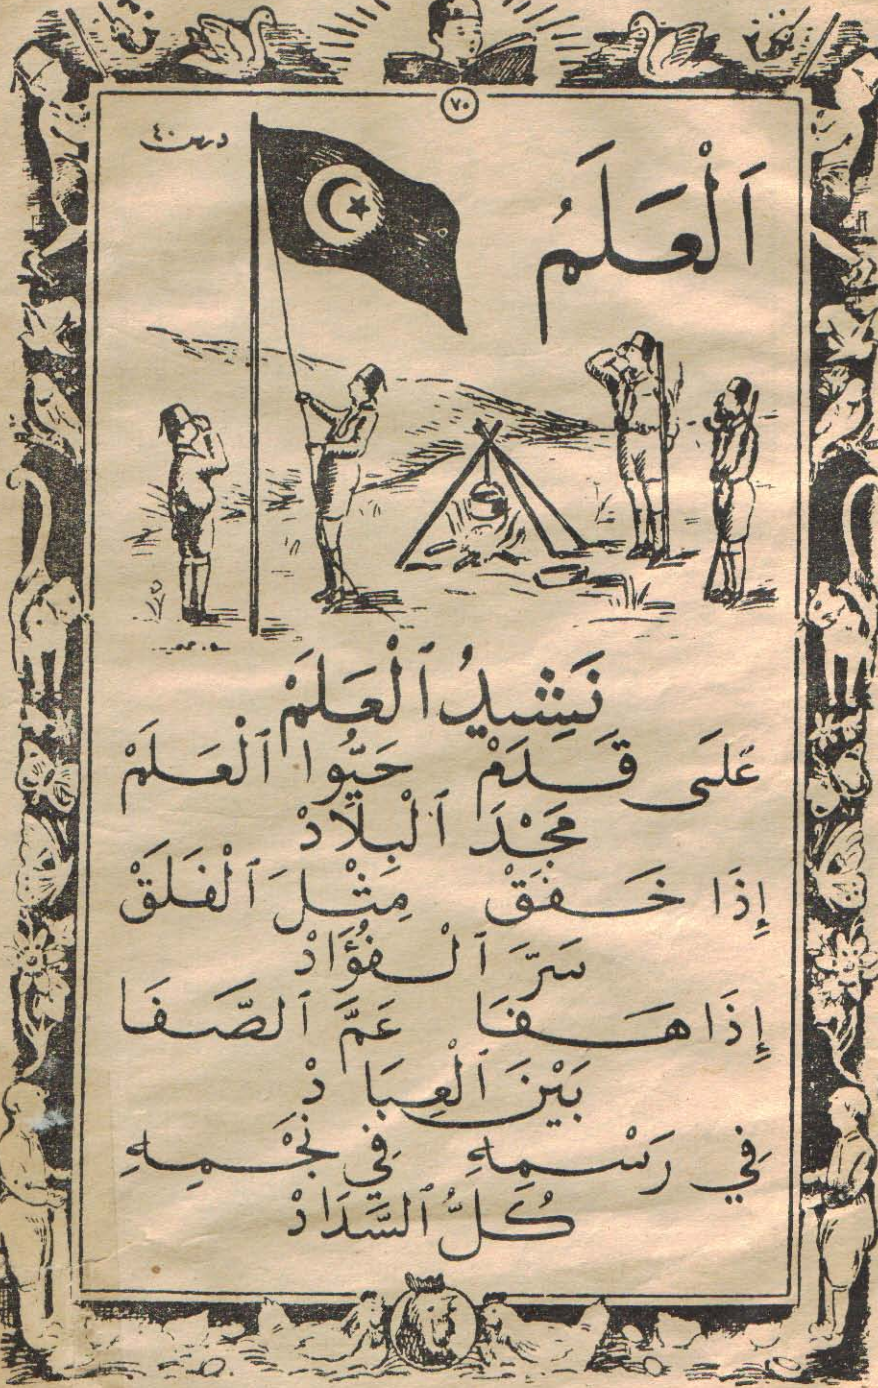 ٧٠
درس ٤٠
اَلْعَلَمُ
نَشِيدُ ٱلْعَلَمْ
عَلَى قَدَمْ حَيُّوا ٱلْعَلَمْ
مَجْدَ ٱلْبِلَادْ
إِذَا خَفَقْ مِثْلَ ٱلْفَلَقْ
سَرَّ ٱلْفُؤَادْ
إِذَا هَفَا عَمَّ ٱلصَّفَا
بَيْنَ ٱلْعِبَادْ
فِي رَسْمِهِ فِي نَجْمِهِ
كُلُّ ٱلسَّدَادْ